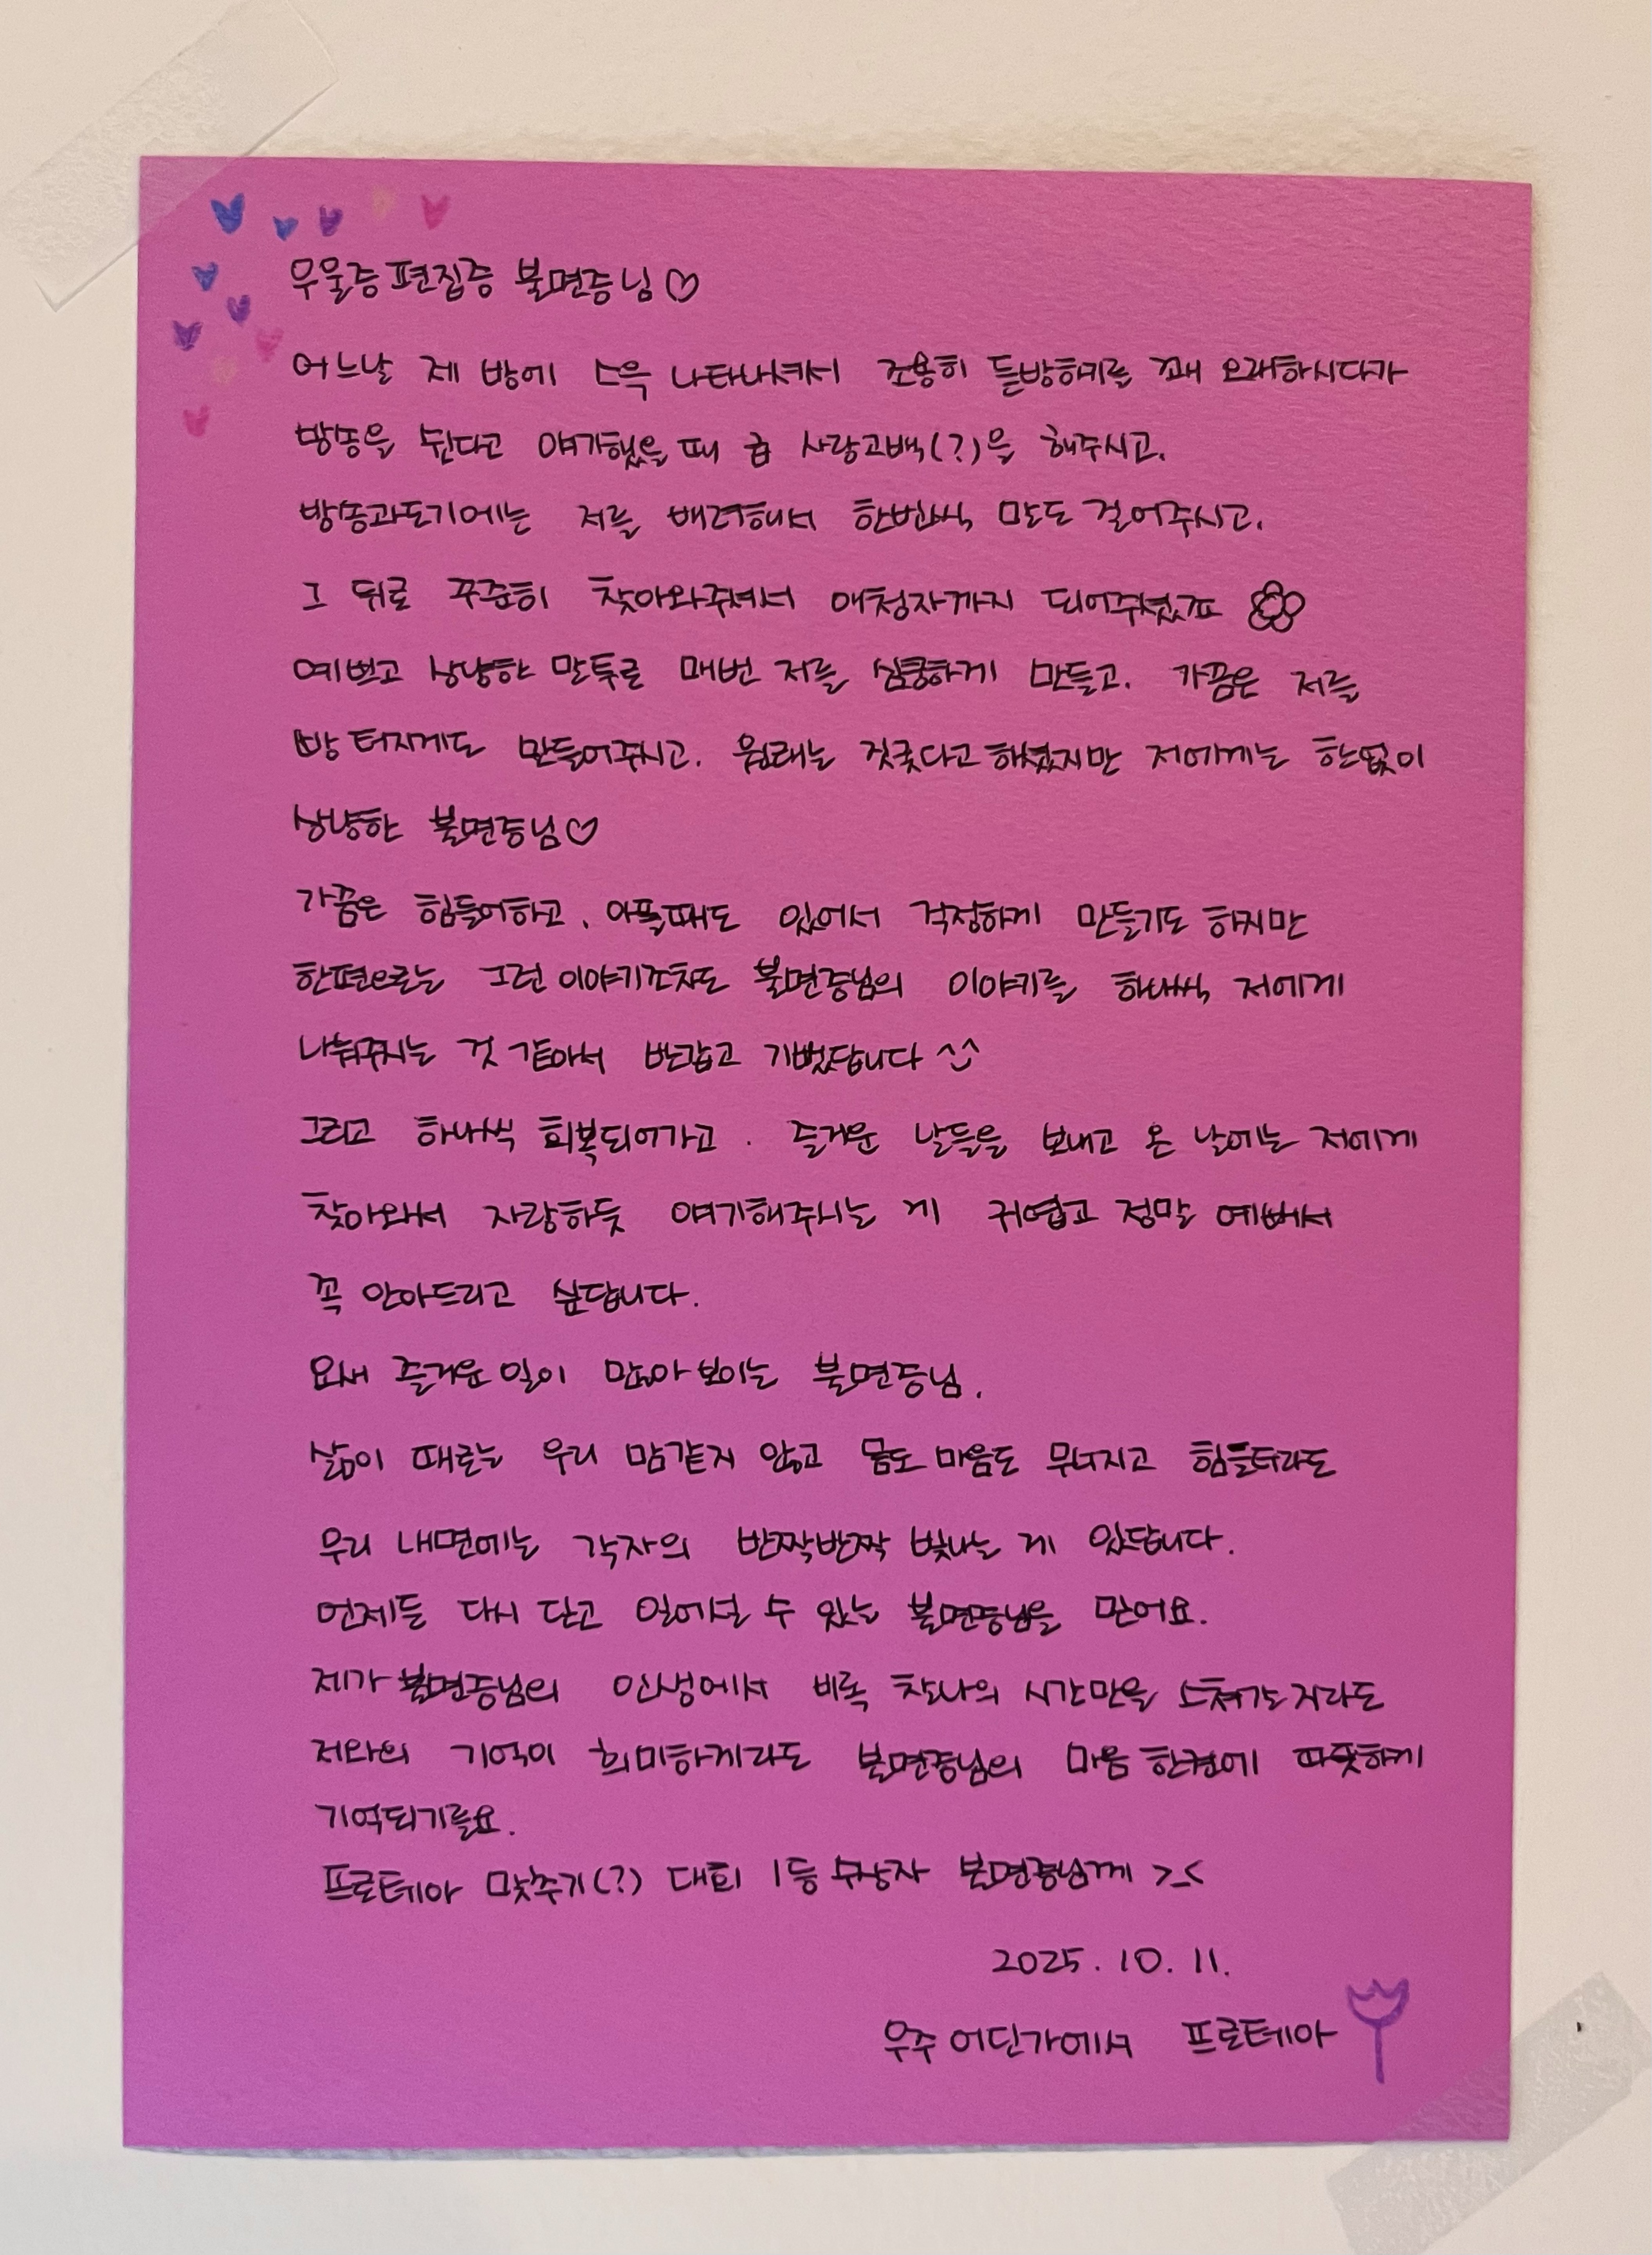 우울증편집증 불면증님♡
어느날 제 방에 스윽 나타나셔서 조용히 듣방하기를 꽤 오래하시다가
방송을 쉰다고 얘기했을 때 급 사랑고백(?)을 해주시고.
방송과도기에는 저를 배려해서 한번씩 말도 걸어주시고.
그 뒤로 꾸준히 찾아와주셔서 애청자까지 되어주셨죠
예쁘고 상냥한 말투로 매번 저를 심쿵하게 만들고. 가끔은 저를
빵 터지게도 만들어주시고. 원래는 짓궂다고 하셨지만 저에게는 한없이
상냥한 불면증님♡
가끔은 힘들어하고, 아플때도 있어서 걱정하게 만들기도 하지만
한편으로는 그런 이야기조차도 불면증님의 이야기를 하나씩 저에게
나눠주시는 것 같아서 반갑고 기뻤답니다 ^^
그리고 하나씩 회복되어가고. 즐거운 날들을 보내고 온 날에는 저에게
찾아와서 자랑하듯 얘기해주시는 게 귀엽고 정말 예뻐서
꼭 안아드리고 싶답니다.
요새 즐거운 일이 많아 보이는 불면증님.
삶이 때로는 우리 맘같지 않고 몸도 마음도 무너지고 힘들더라도
우리 내면에는 각자의 반짝반짝 빛나는 게 있답니다.
언제든 다시 딛고 일어설 수 있는 불면증님을 믿어요.
제가 불면증님의 인생에서 비록 찰나의 시간만을 스쳐가는 자라도
저와의 기억이 희미하게라도 불면증님의 마음 한켠에 따뜻하게
기억되기를요.
프로테아 맞추기(?) 대회 1등 수상자 불면증님께 >_<
2025. 10. 11.
우주 어딘가에서 프로테아